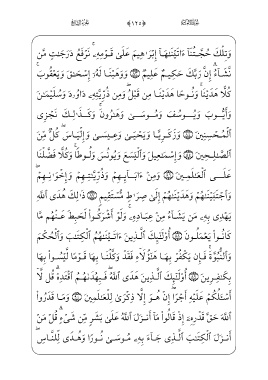 وَتِلْكَ حُجَّتُنَآ ءَاتَيْنَٰهَآ إِبْرَٰهِيمَ عَلَىٰ قَوْمِهِۦ نَرْفَعُ دَرَجَٰتٍ مَّن
نَّشَآءُ إِنَّ رَبَّكَ حَكِيمٌ عَلِيمٌ ٨٣ وَوَهَبْنَا لَهُۥٓ إِسْحَٰقَ وَيَعْقُوبَ
كُلًّا هَدَيْنَا وَنُوحًا هَدَيْنَا مِن قَبْلُ وَمِن ذُرِّيَّتِهِۦ دَاوُۥدَ وَسُلَيْمَٰنَ
وَأَيُّوبَ وَيُوسُفَ وَمُوسَىٰ وَهَٰرُونَ وَكَذَٰلِكَ نَجْزِى
ٱلْمُحْسِنِينَ ٨٤ وَزَكَرِيَّا وَيَحْيَىٰ وَعِيسَىٰ وَإِلْيَاسَ كُلٌّ مِّنَ
ٱلصَّٰلِحِينَ ٨٥ وَإِسْمَٰعِيلَ وَٱلْيَسَعَ وَيُونُسَ وَلُوطًا وَكُلًّا فَضَّلْنَا
عَلَى ٱلْعَٰلَمِينَ ٨٦ وَمِنْ ءَابَآئِهِمْ وَذُرِّيَّٰتِهِمْ وَإِخْوَٰنِهِمْ
وَٱجْتَبَيْنَٰهُمْ وَهَدَيْنَٰهُمْ إِلَىٰ صِرَٰطٍ مُّسْتَقِيمٍ ٨٧ ذَٰلِكَ هُدَى ٱللَّهِ
يَهْدِى بِهِۦ مَن يَشَآءُ مِنْ عِبَادِهِۦ وَلَوْ أَشْرَكُوا۟ لَحَبِطَ عَنْهُم مَّا
كَانُوا۟ يَعْمَلُونَ ٨٨ أُو۟لَٰٓئِكَ ٱلَّذِينَ ءَاتَيْنَٰهُمُ ٱلْكِتَٰبَ وَٱلْحُكْمَ
وَٱلنُّبُوَّةَ فَإِن يَكْفُرْ بِهَا هَٰٓؤُلَآءِ فَقَدْ وَكَّلْنَا بِهَا قَوْمًا لَّيْسُوا۟ بِهَا
بِكَٰفِرِينَ ٨٩ أُو۟لَٰٓئِكَ ٱلَّذِينَ هَدَى ٱللَّهُ فَبِهُدَىٰهُمُ ٱقْتَدِهْ قُل لَّآ
أَسْـَٔلُكُمْ عَلَيْهِ أَجْرًا إِنْ هُوَ إِلَّا ذِكْرَىٰ لِلْعَٰلَمِينَ ٩٠ وَمَا قَدَرُوا۟
ٱللَّهَ حَقَّ قَدْرِهِۦٓ إِذْ قَالُوا۟ مَآ أَنزَلَ ٱللَّهُ عَلَىٰ بَشَرٍ مِّن شَىْءٍ قُلْ مَنْ
أَنزَلَ ٱلْكِتَٰبَ ٱلَّذِى جَآءَ بِهِۦ مُوسَىٰ نُورًا وَهُدًى لِّلنَّاسِ